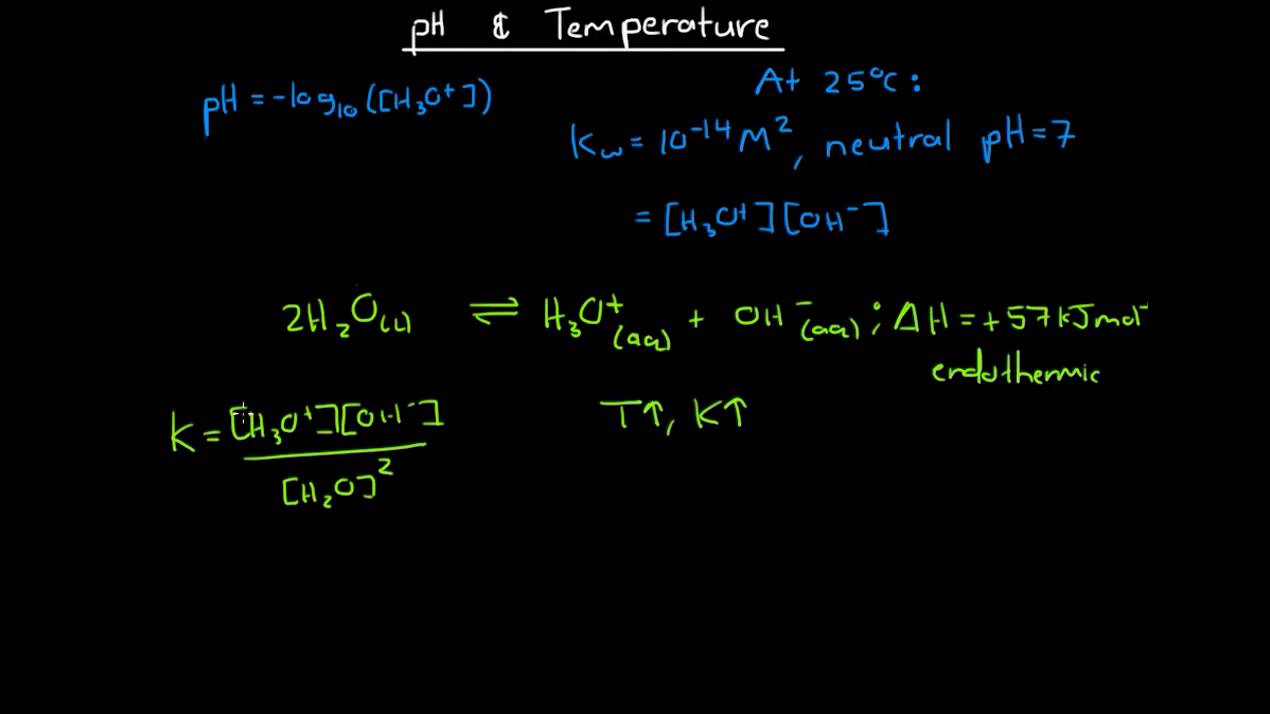 pH & Temperature
pH = -log₁₀([H₃O⁺])
At 25°C:
Kw = 10⁻¹⁴ M², neutral pH = 7
= [H₃O⁺][OH⁻]
2H₂O(l) ⇌ H₃O⁺(aq) + OH⁻(aq) ; ΔH = +57kJmol⁻
endothermic
K = [H₃O⁺][OH⁻]
[H₂O]²
T↑, K↑